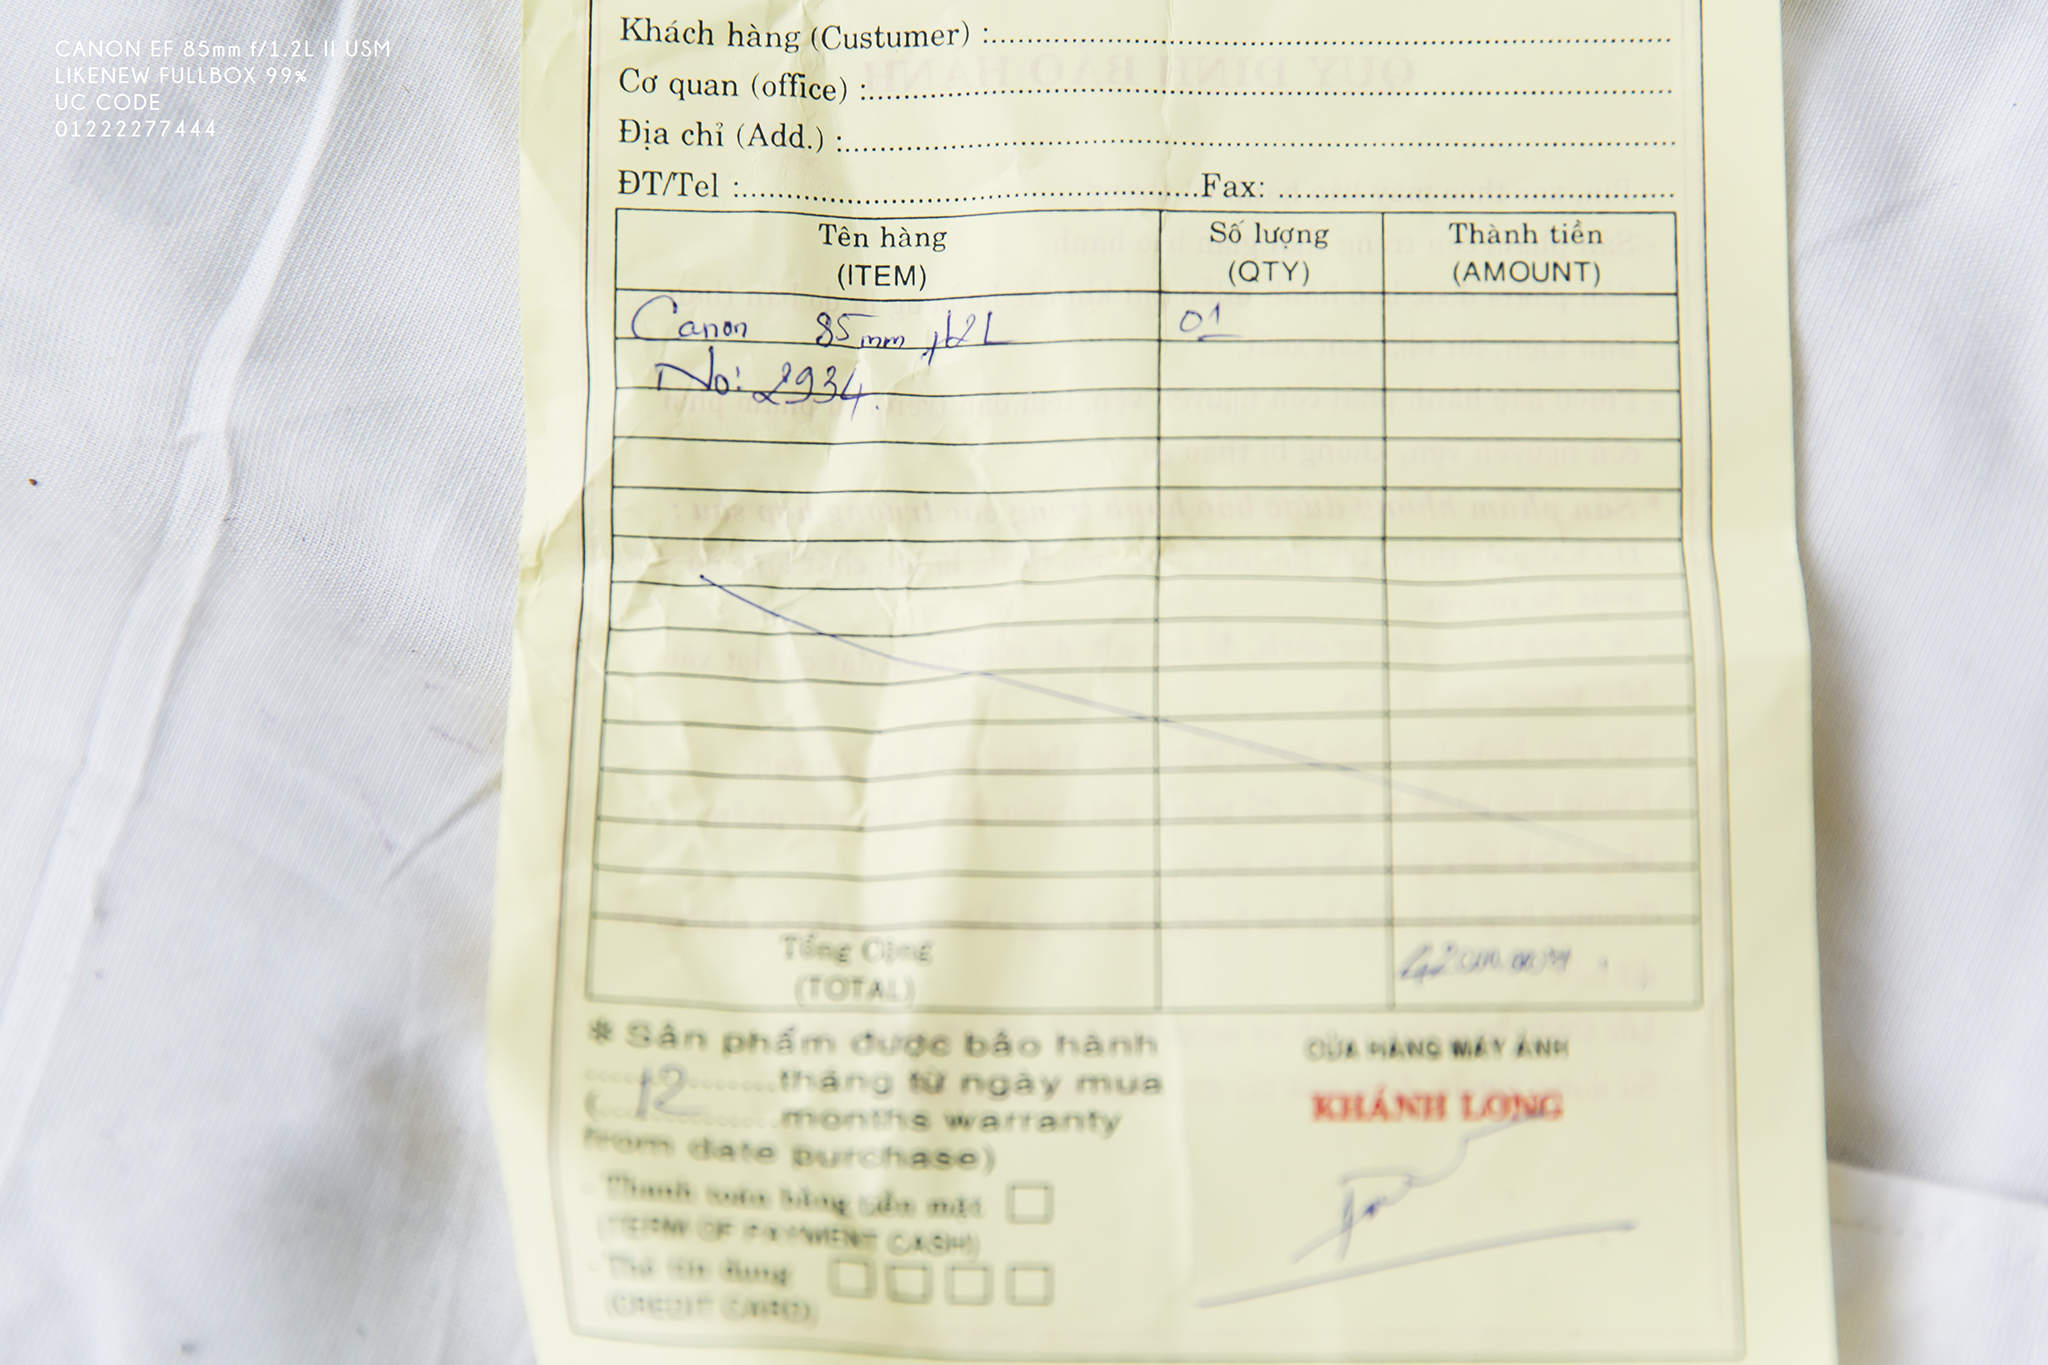 CANON EF 85mm f/1.2L II USM
LIKENEW FULLBOX 99%
UC CODE
01222277444
Khách hàng (Custumer) :
Cơ quan (office) :
Địa chỉ (Add.) :
ĐT/Tel : Fax:
Tên hàng Số lượng Thành tiền
(ITEM) (QTY) (AMOUNT)
Canon 85mm 1.2L 01
No: 2934.
Tổng Cộng
(TOTAL)
* Sản phẩm được bảo hành
12 tháng từ ngày mua
( months warranty
from date purchase)
- Thanh toán bằng tiền mặt
(TERM OF PAYMENT CASH)
- Thẻ tín dụng
(CREDIT CARD)
CỬA HÀNG MÁY ẢNH
KHÁNH LONG